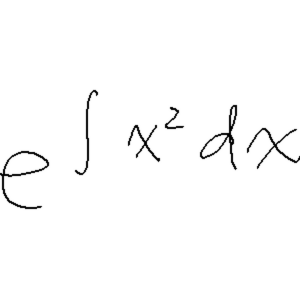 e^{∫ x² dx}